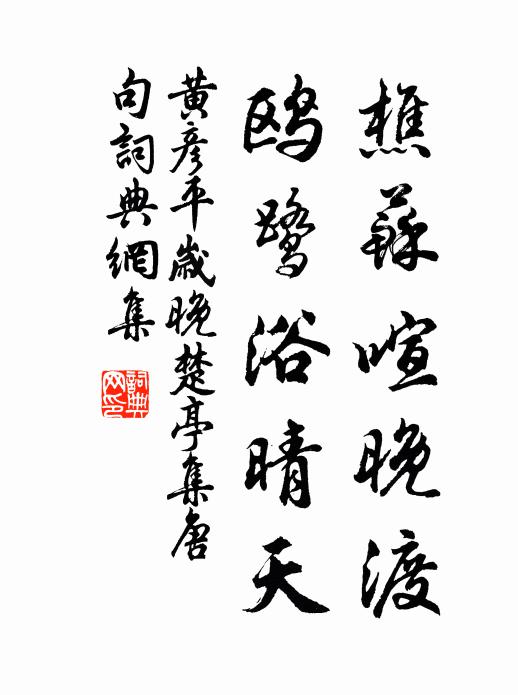 樵蘇喧晚渡
鷗鷺浴晴天
黃彥平歲晚楚亭集唐
句詞典網集
詞典
网印